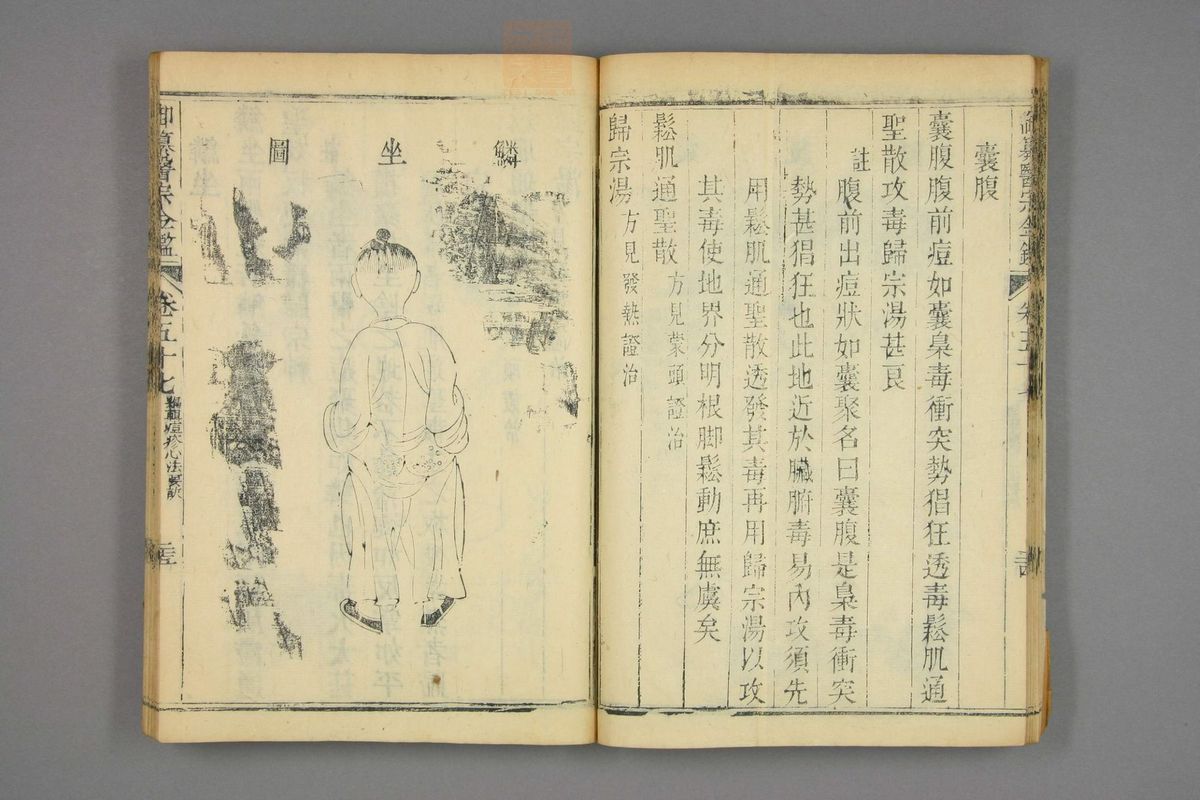 囊腹
囊腹腹前痘如囊梟毒衝突勢猖狂透毒鬆肌通
聖散攻毒歸宗湯甚良
註腹前出痘狀如囊聚名曰囊腹是梟毒衝突
勢甚猖狂也此地近於臟腑毒易內攻須先
用鬆肌通聖散透發其毒再用歸宗湯以攻
其毒使地界分明根脚鬆動庶無虞矣
鬆肌通聖散方見蒙頭證治
歸宗湯方見發熱證治
鱗坐圖
御纂醫宗金鑑
卷五十七
痘疹心法要訣